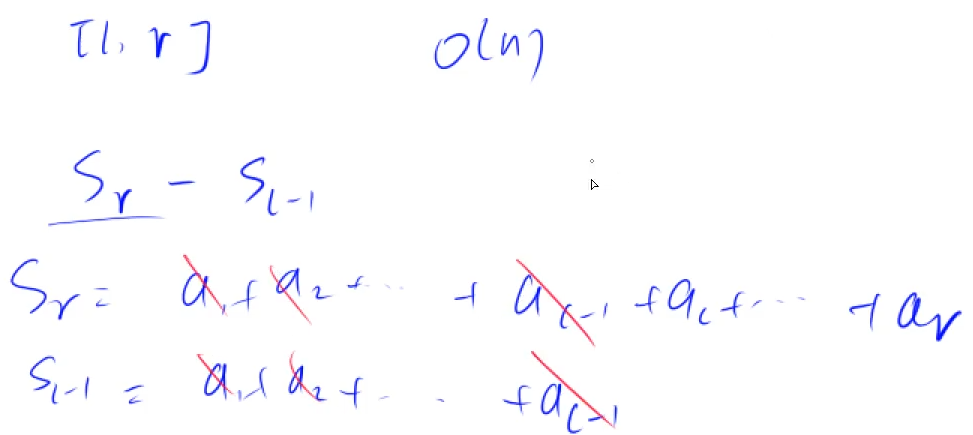 [l, r] O(n)
Sᵣ - Sₗ₋₁
Sᵣ = a₁ + a₂ + ... + aₗ₋₁ + aₗ + ... + aᵣ
Sₗ₋₁ = a₁ + a₂ + ... + aₗ₋₁